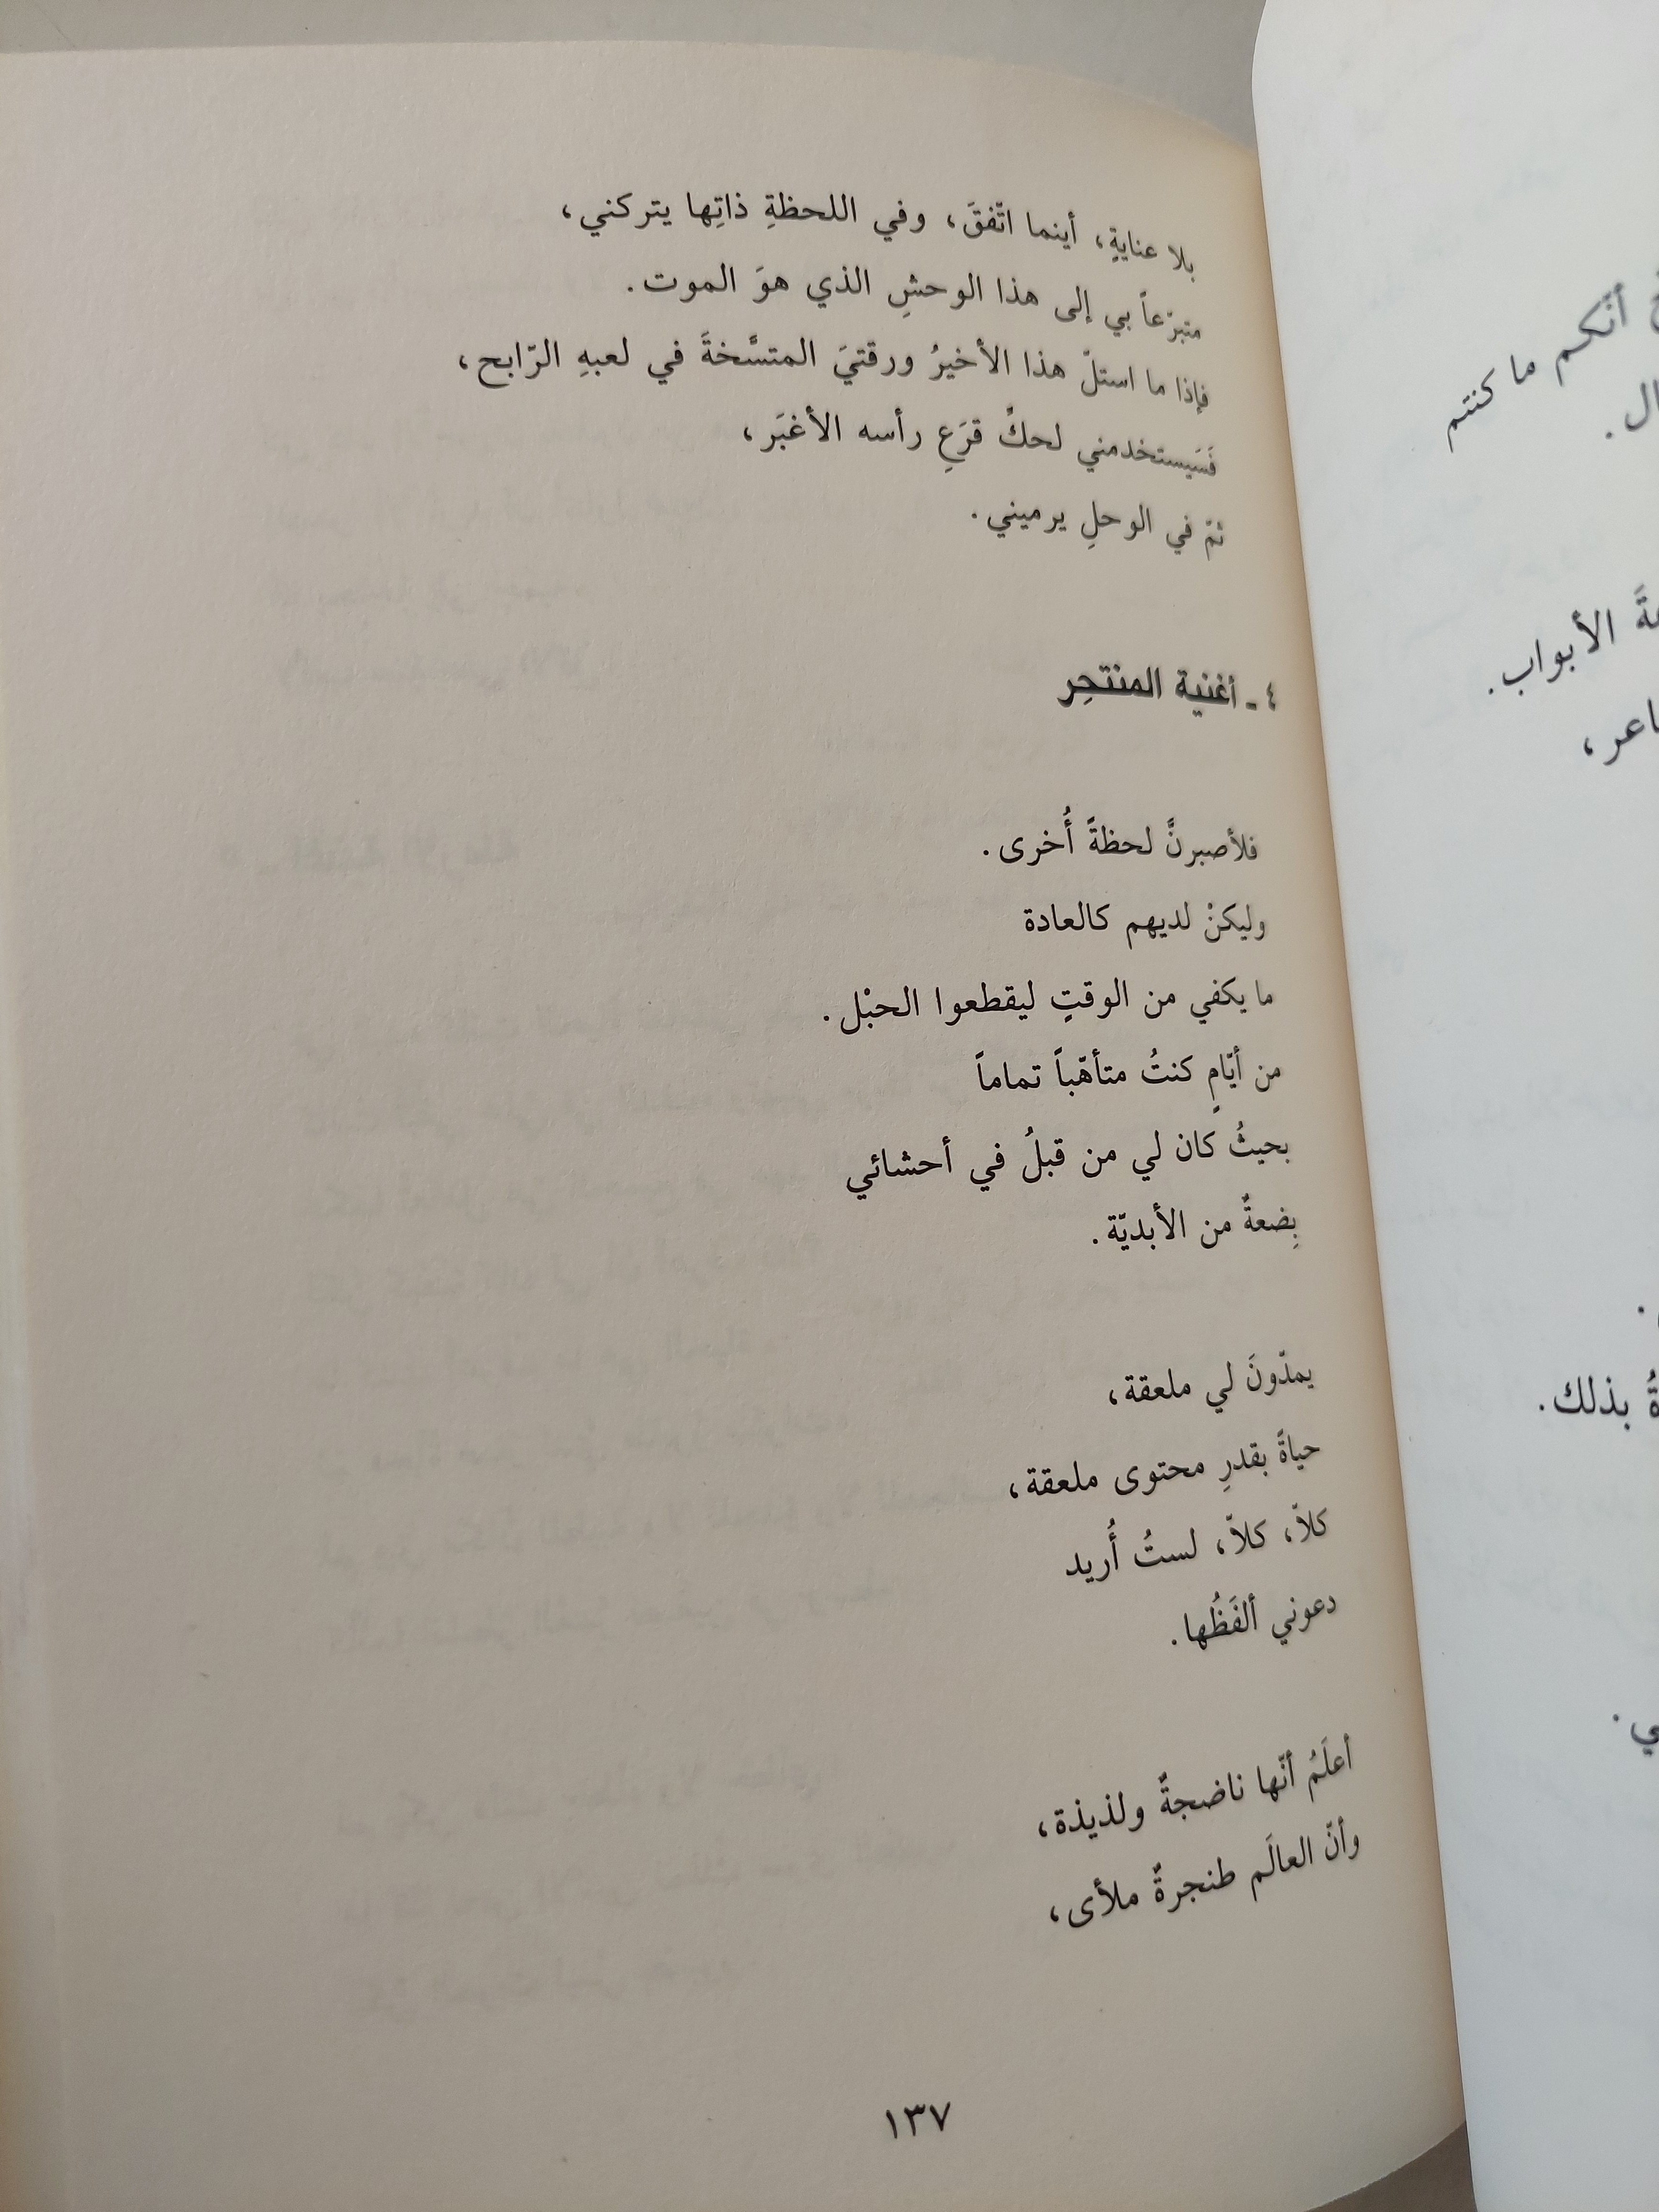 بلا عنايةٍ، أينما اتّفقَ، وفي اللحظةِ ذاتِها يتركني،
متبرّعاً بي إلى هذا الوحشِ الذي هوَ الموت.
فإذا ما استلّ هذا الأخيرُ ورقتيَ المتسَّخةَ في لعبهِ الرّابح،
فَسَيستخدمني لحكِّ قرَعِ رأسه الأغبَر،
ثمّ في الوحلِ يرميني.
٤ - أغنية المنتحِر
فلأصبرنَّ لحظةً أُخرى.
وليكنْ لديهم كالعادة
ما يكفي من الوقتِ ليقطعوا الحبْل.
من أيّامٍ كنتُ متأهّباً تماماً
بحيثُ كان لي من قبلُ في أحشائي
بِضعةٌ من الأبديّة.
يمدّونَ لي ملعقة،
حياةً بقدرِ محتوى ملعقة،
كلاّ، كلاّ، لستُ أُريد
دعوني ألفَظُها.
أعلَمُ أنّها ناضجةٌ ولذيذة،
وأنّ العالَم طنجرةٌ ملأى،
١٣٧
أنّكم ما كنتم
الأبواب.
بذلك.